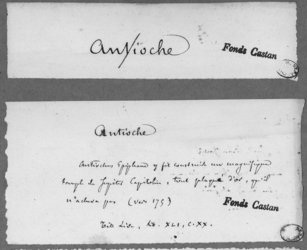 Antioche
Fonds Castan
Antioche
Antiochus Epiphane y fit construire un magnifique
temple de Jupiter Capitolin, tout plaqué d'or, qu'il
n'acheva pas (vers 175)
Fonds Castan
Tite Live, Lib. XLI, C. XX.